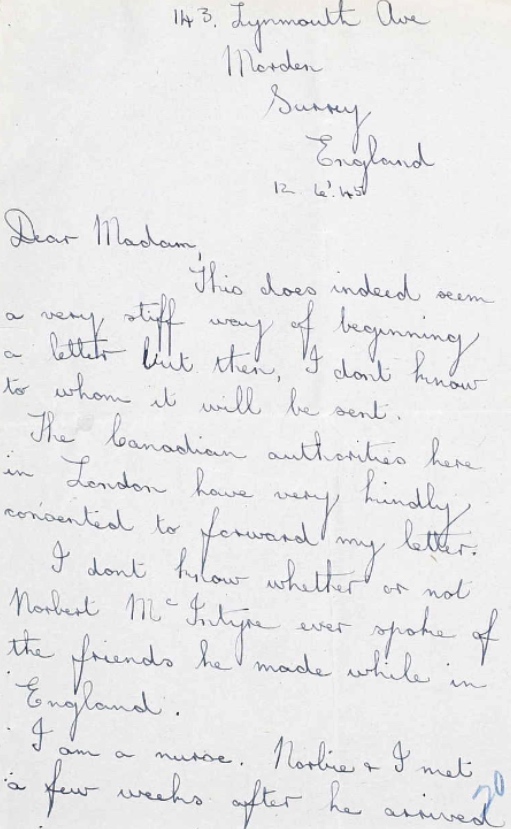 143. Lynmouth Ave
Morden
Surrey
England
12. 6. 45
Dear Madam,
This does indeed seem
a very stiff way of beginning
a letter but then, I dont know
to whom it will be sent.
The Canadian authorities here
in London have very kindly
consented to forward my letter.
I dont know whether or not
Norbert McIntyre ever spoke of
the friends he made while in
England.
I am a nurse. Norbie & I met
a few weeks after he arrived
20